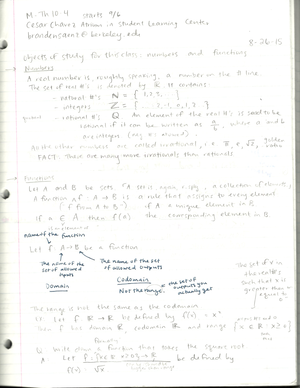 M-Th 10-4 starts 9/6
Cesar Chavez Atrium in Student Learning Center
brandensanz@berkeley.edu
8-26-15
Objects of study for this class: numbers and functions
Numbers
A real number is, roughly speaking, a number on the # line.
The set of real #'s is denoted by ℝ. It contains:
- natural #'s: ℕ = {1, 2, 3, ...}
- integers ℤ = {..., -2, -1, 0, 1, 2, ...}
- rational #'s: ℚ An element of the real #'s is said to be
rational if it can be written as a/b, where a and b
are integers
All the other numbers are called irrational, i.e. π, e, √2, golden ratio
FACT: There are many more irrationals than rationals
Functions
Let A and B be sets. A set is, again roughly, a collection of elements.
A function f: A → B is a rule that assigns to every element
"f from A to B" of A a unique element in B
If a ∈ A then f(a) the corresponding element in B.
name of the function
Let f: A → B be a function
The name of the set of allowed inputs
The name of the set of allowed outputs
Domain
Codomain
Not the range, the set of outputs you actually get
The range is not the same as the codomain
Let f: ℝ → ℝ be defined by f(x) = x²
Then f has domain ℝ, codomain ℝ and range {x ∈ ℝ : x ≥ 0}
The set of x in the real #'s such that x is greater than or equal to 0
Write down a function that takes the square root.
be defined by
f(x) = √x